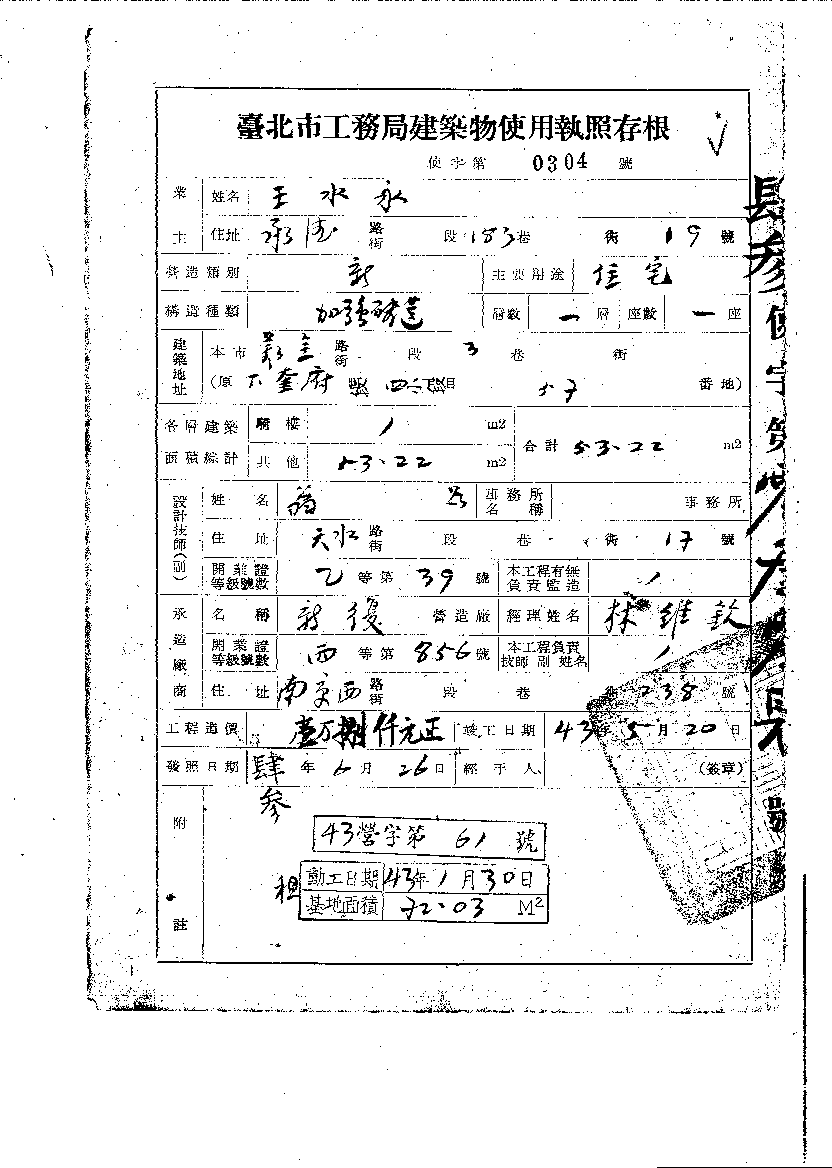 臺北市工務局建築物使用執照存根
使字第 0304 號
業主 姓名 王水永
住址 承德 路街 段 183 巷 衖 19 號
營造類別 新 主要用途 住宅
構造種類 加強磚造 層數 一 層 座數 一 座
建築地址 本市 路街 段 3 巷 衖
(原 下奎府 四 目 57 番地)
各層建築面積總計 騎樓 / m2 合計 53.22 m2
其他 53.22 m2
設計技師(副) 姓名 翁 事務所名稱 事務所
住址 天水 路街 段 巷 衖 17 號
開業證等級號數 乙 等第 39 號 本工程有無負責監造 /
承造廠商 名稱 新復 營造廠 經理姓名 林維欽
開業證等級號數 丙 等第 856 號 本工程負責技師副姓名 /
住址 南京西 路街 段 巷 238 號
工程造價 壹万捌仟元正 竣工日期 43 年 5 月 20 日
發照日期 肆參 年 6 月 26 日 經手人 (簽章)
附註
43營字第 61 號
動工日期 43年1月30日
基地面積 72.03 M²
使字第
號